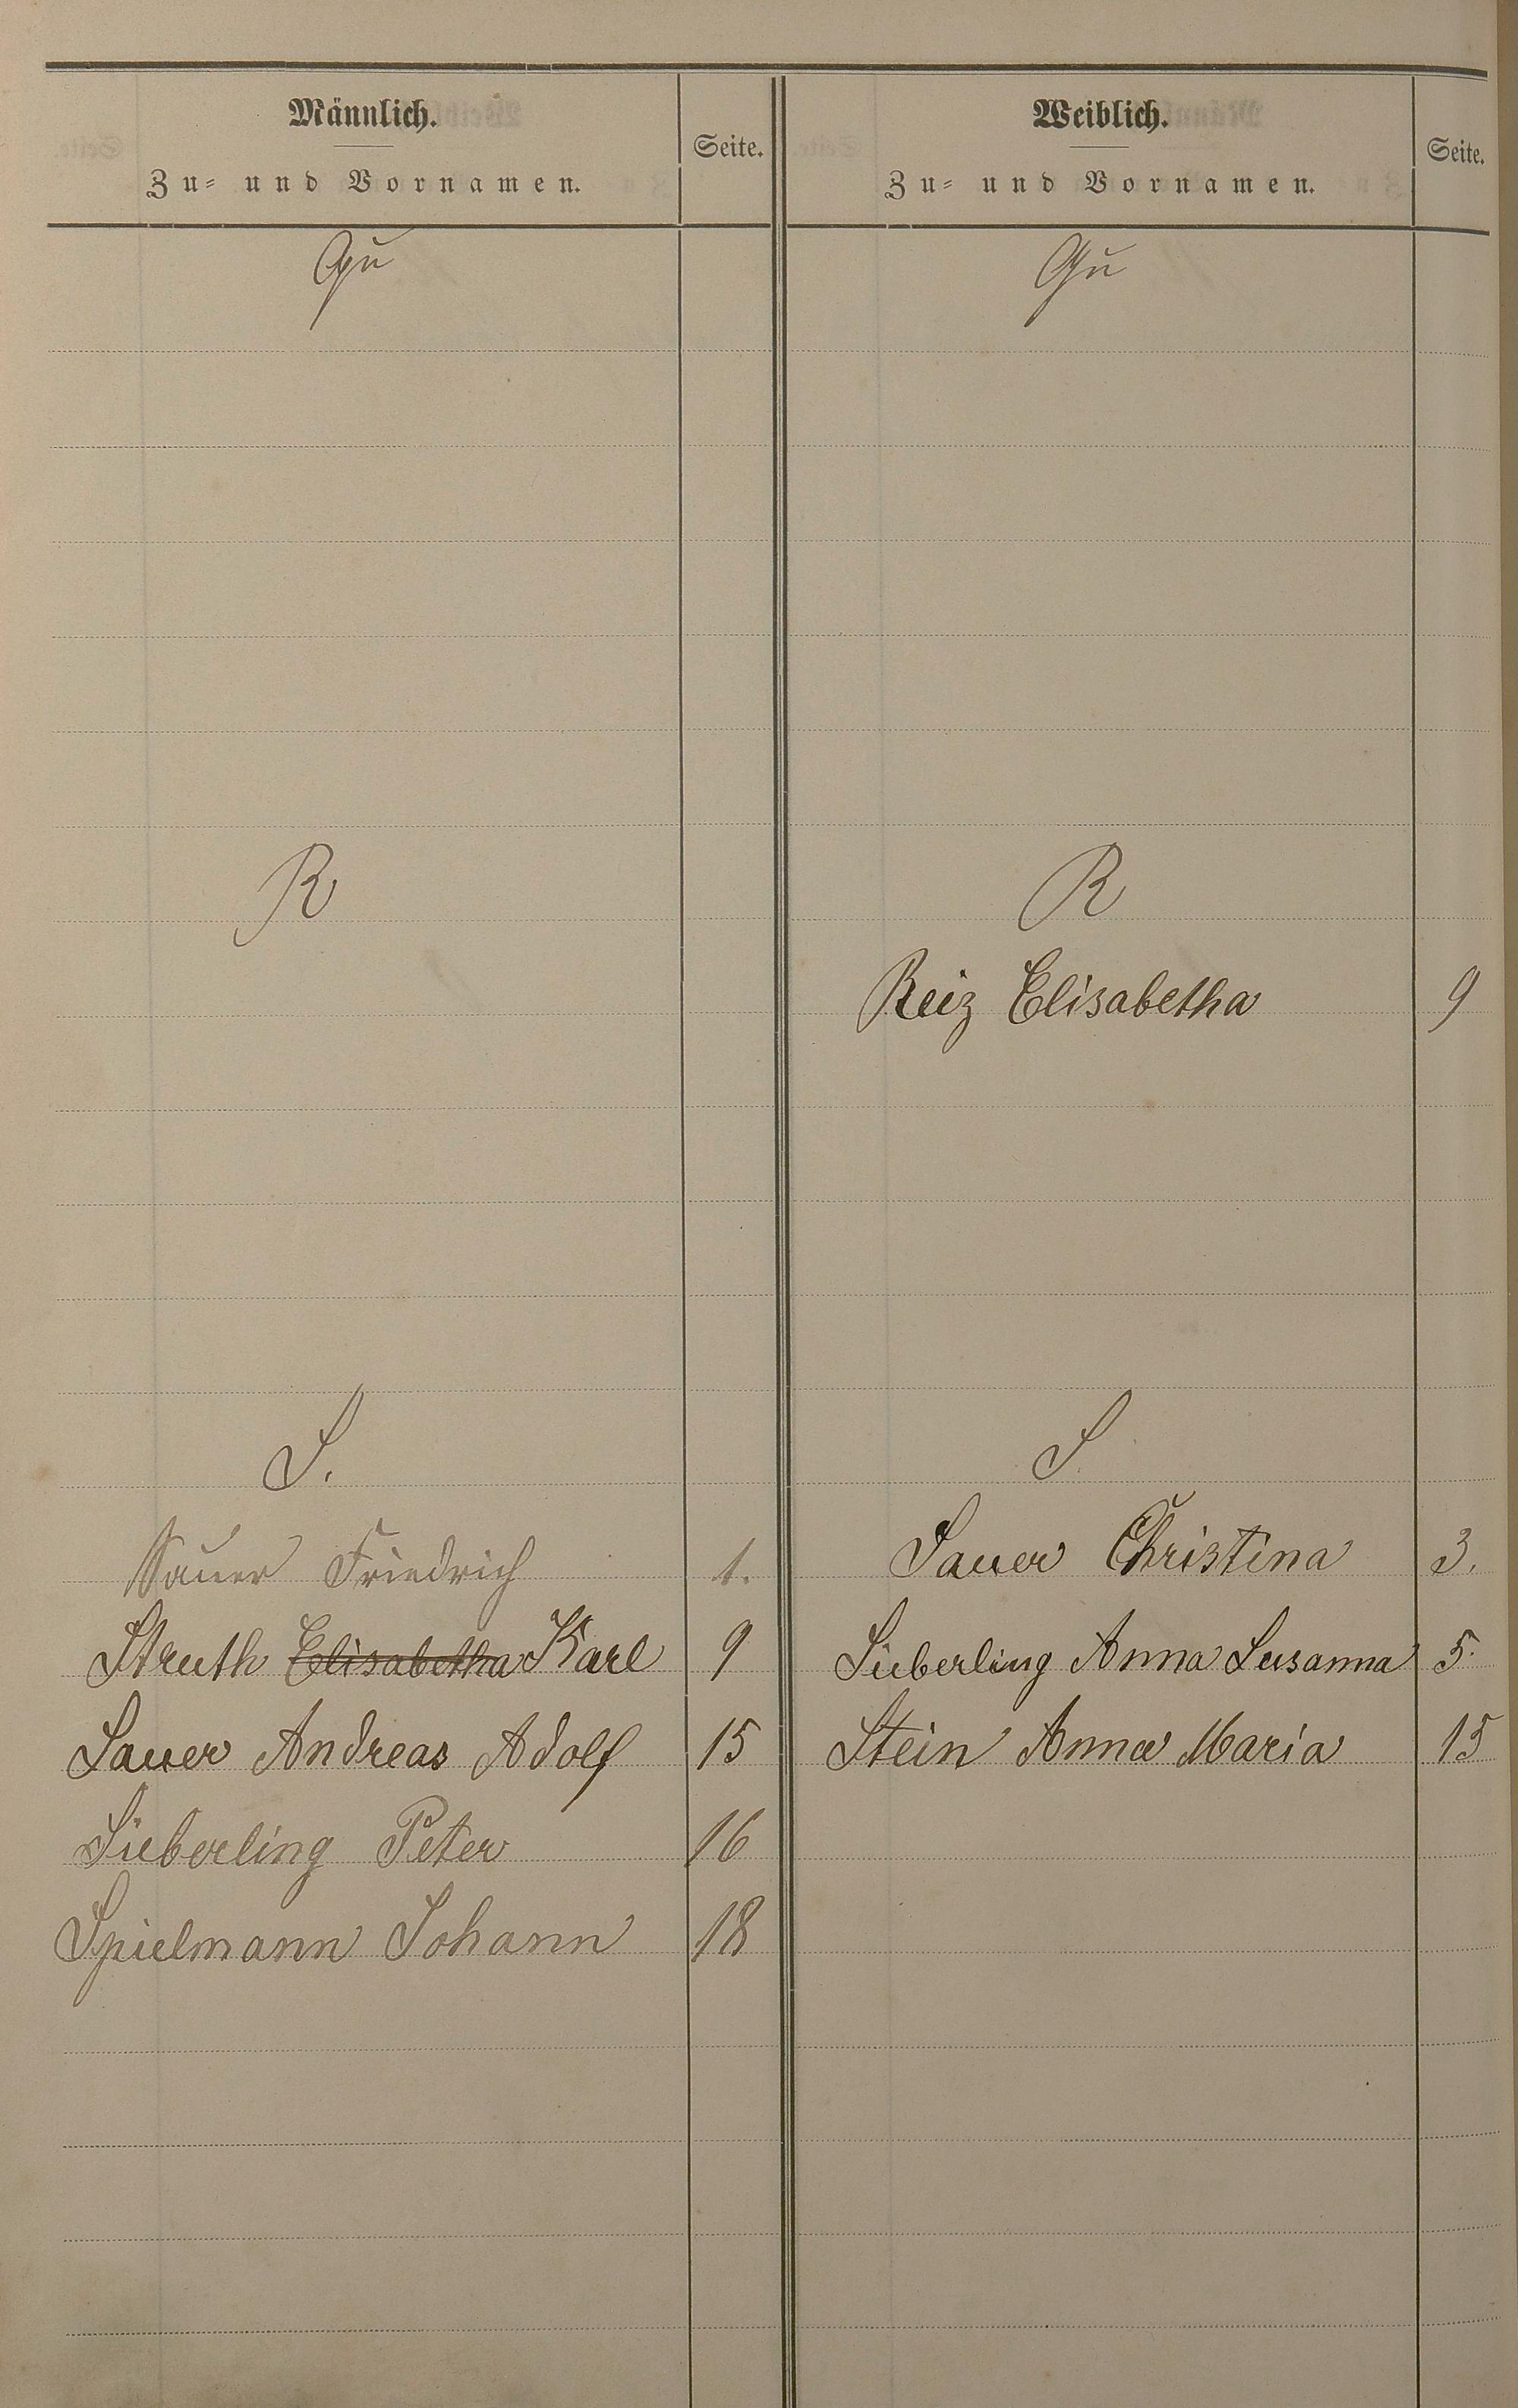 Männlich.
Zu= und Vornamen.
Seite.
Qu
R
S.
Sauer Friedrich 1.
Struth Elisabetha Karl 9
Sauer Andreas Adolf 15
Süberling Peter 16
Spielmann Johann 18
Weiblich.
Zu= und Vornamen.
Seite.
Qu
R
Reiz Elisabetha 9
S
Sauer Christina 3.
Süberling Anna Susanna 5.
Stein Anna Maria 15